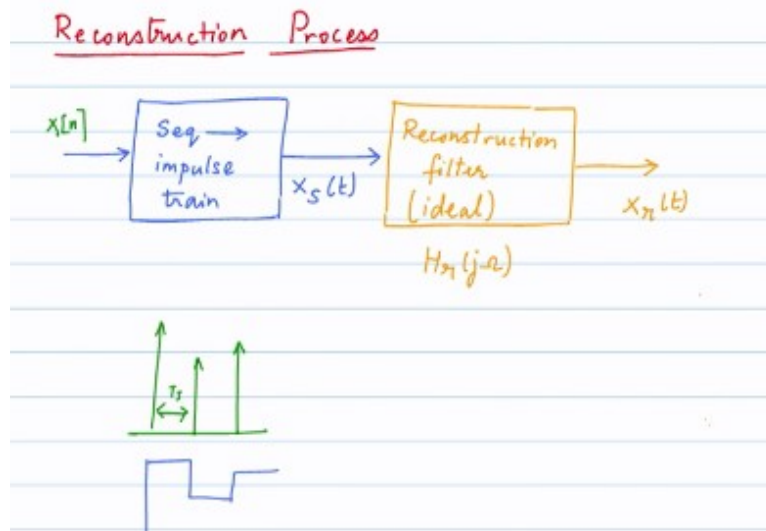 Reconstruction Process
x[n]
Seq →
impulse
train
x_s(t)
Reconstruction
filter
(ideal)
x_r(t)
H_r(jΩ)
T_s